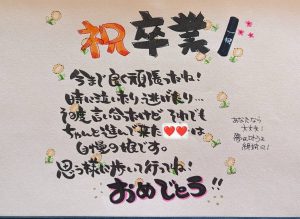 祝卒業!
祝
今まで良く頑張ったね!
時に泣いたり、逃げたり...
何度言い合ったけど それでも
ちゃんと進んで来た ❤❤は
自慢の推です。
思う様に歩いて行ってね!
おめでとう!!
あなたなら
大丈夫!